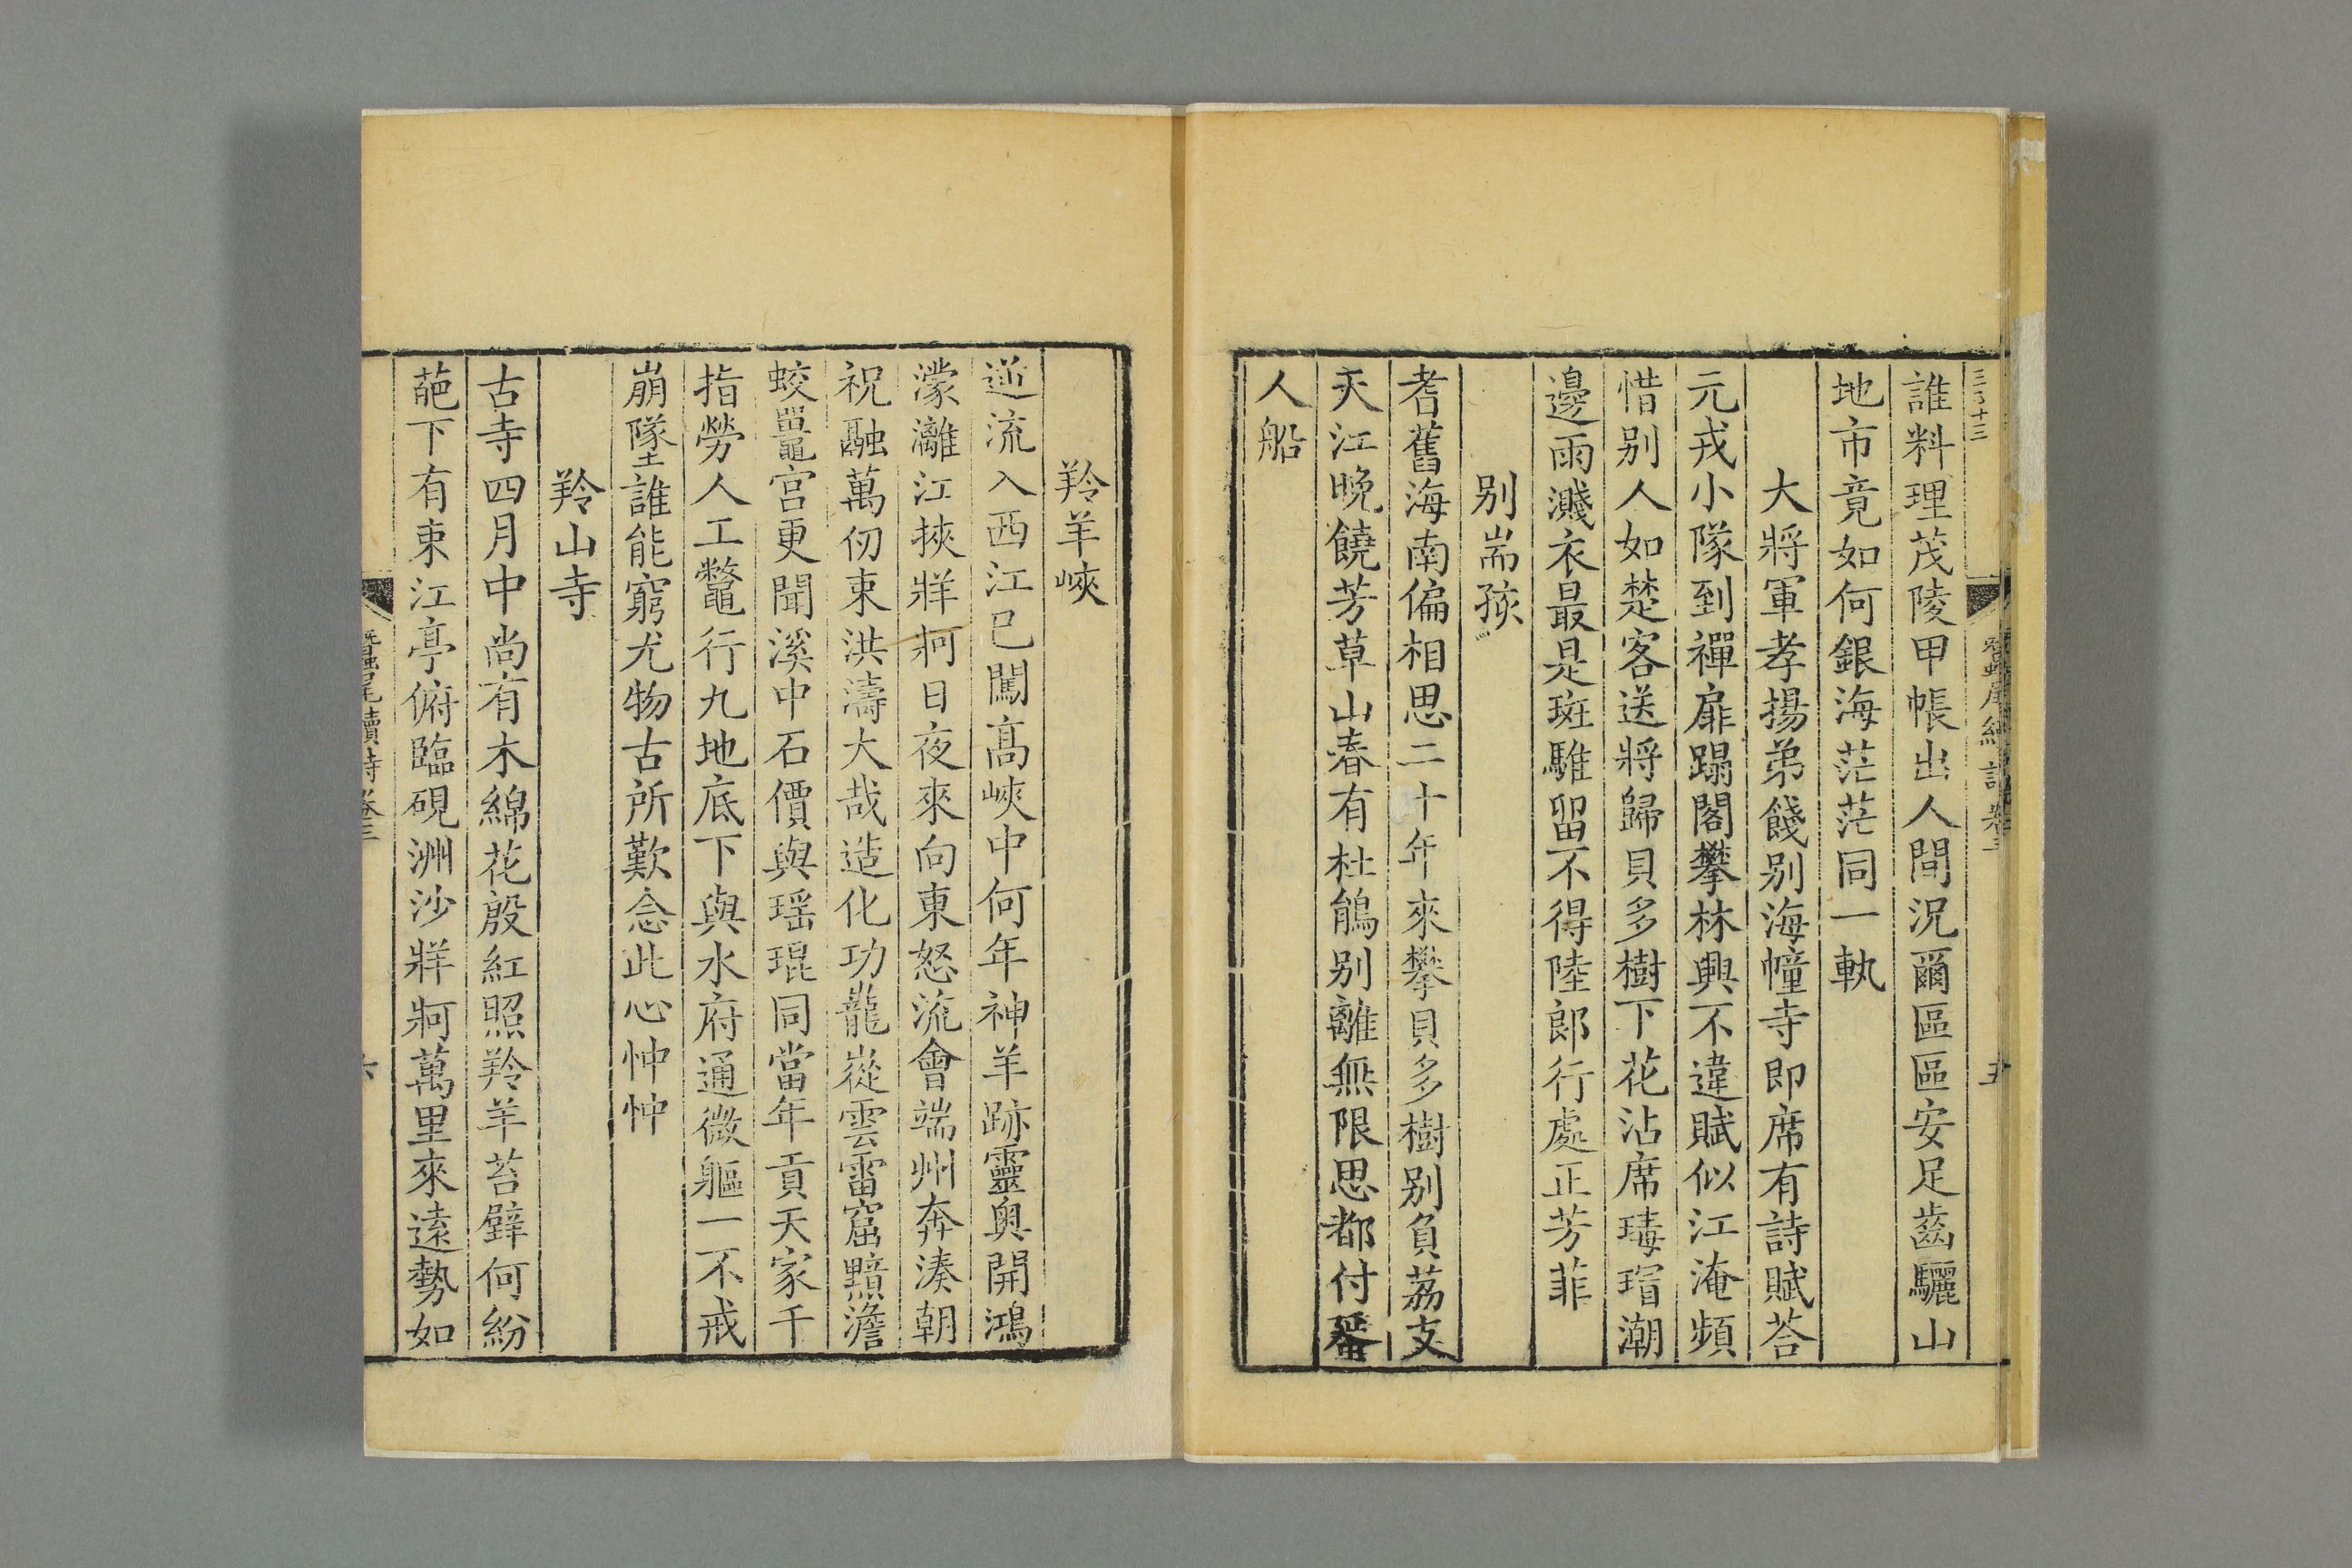 誰料理茂陵甲帳出人間況爾區區安足齒驪山
地市竟如何銀海茫茫同一執
大將軍孝揚弟餞別海幢寺即席有詩賦荅
元戎小隊到禪扉蹋閣攀林興不違賦似江淹頻
惜別人如楚客送將歸貝多樹下花沾席瑇瑁潮
邊雨濺衣最是斑騅留不得陸郎行處正芳菲
別耑孩
耆舊海南偏相思二十年來攀貝多樹別負荔支
天江晚饒芳草山春有杜鵑別離無限思都付
人船
羚羊峽
逆流入西江已闖高峽中何年神羊跡靈奧開鴻
濛灕江挾牂牁日夜來向東怒流會端州奔湊朝
祝融萬仞束洪濤大哉造化功巃嵸雲雷窟黯澹
蛟鼉宮更聞溪中石價與瑶琨同當年貢天家千
指勞人工鼈行九地底下與水府通微軀一不戒
崩墜誰能窮尤物古所歎念此心忡忡
羚山寺
古寺四月中尚有木綿花殷紅照羚羊苔壁何紛
葩下有束江亭俯臨硯洲沙牂牁萬里來遠勢如
蠶尾續詩卷三
六